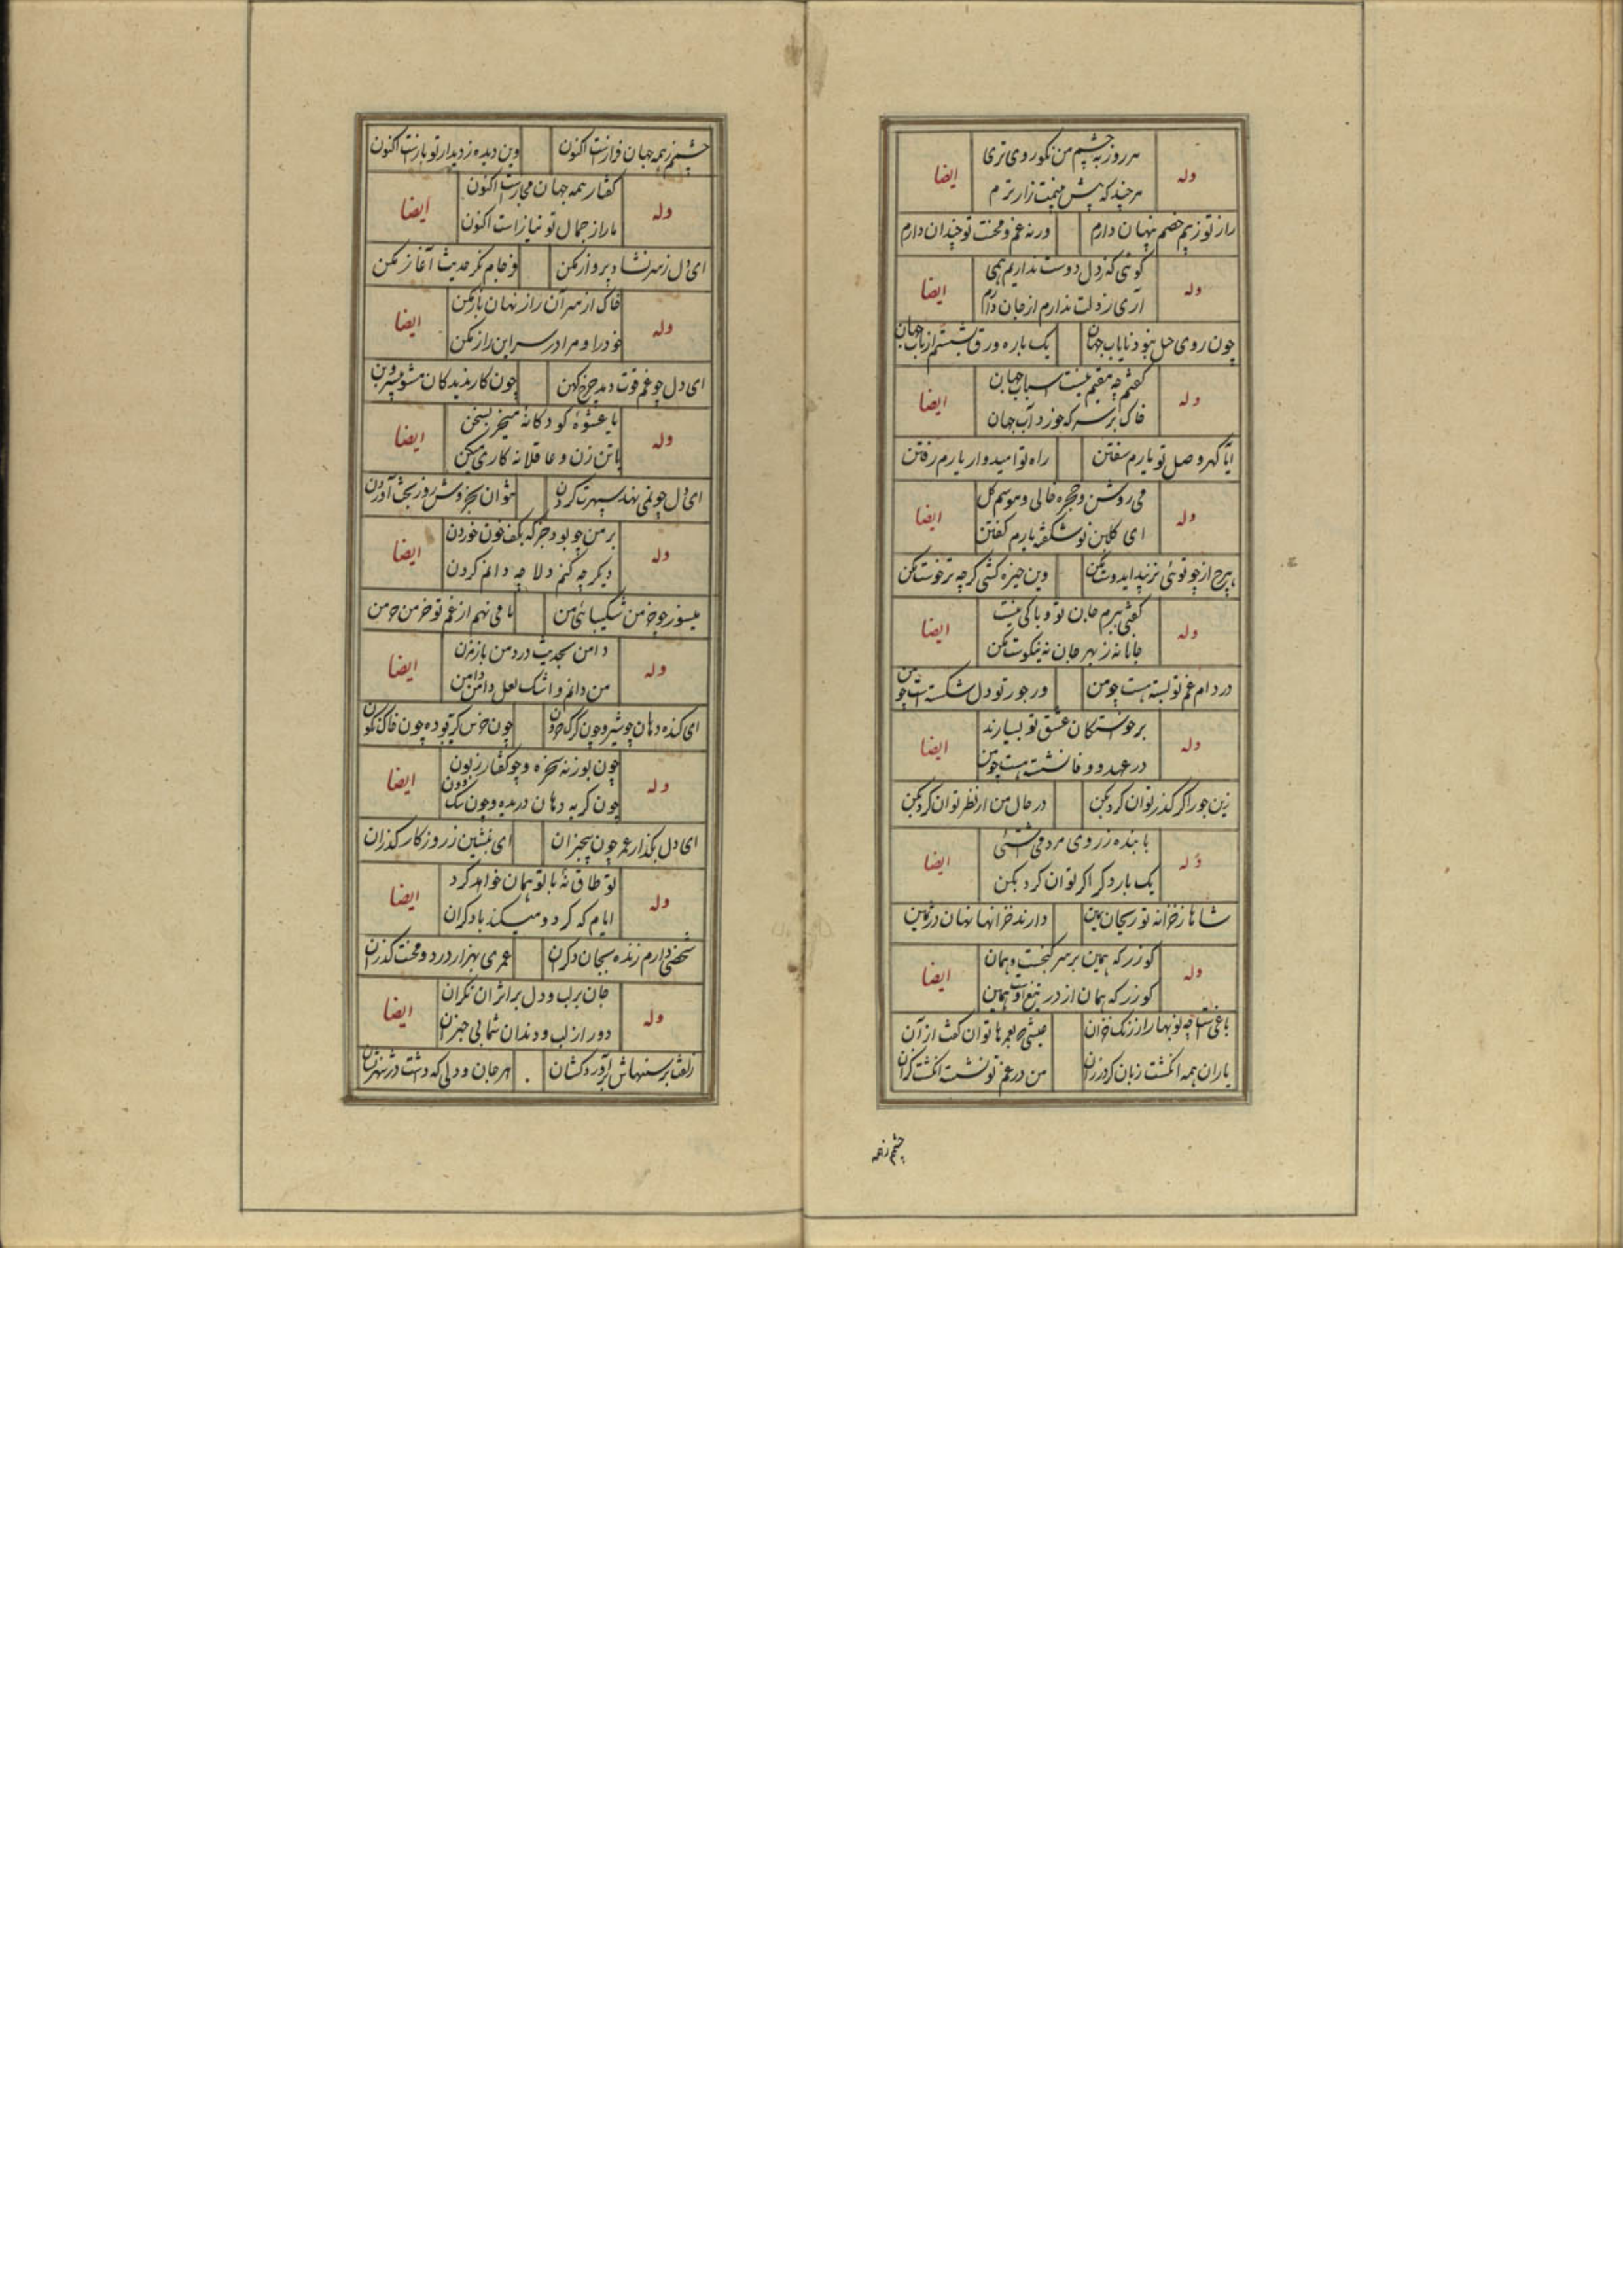 وله هر روز به چشم من نکوروی تری ایضا
هر چند که پیش منت زارترم
راز تو ز بیم خصم پنهان دارم ورنه غم و محنت تو چندان دارم
وله گوئی که ز دل دوست نداریم همی ایضا
آری ز دلت ندارم از جان دارم
چون روی حیل نبود نایاب جهان یک باره ورق بشستم از باب جهان
وله گفتم چه مقیم نیست اسباب جهان ایضا
خاک بر سر که خورد آب جهان
اتا گهر وصل تو یارم سفتن راه تو امیدوار یارم رفتن
وله می روشن و حجره خالی و موسم گل ایضا
ای گلبن نو شکفته یارم گفتن
هیچ از چو توئی نزیبد ایدوست مکن وین خیره کشی گرچه ترا خوست مکن
وله گفتی ببرم جان تو و باکی نیست ایضا
جانا نه ز بهر جان نه نیکوست مکن
در دام غم تو بسته هست چو من ور جور تو دل شکسته هست چو من
وله برخواستگان عشق تو بسیارند ایضا
در عهد وفا نشسته هست چو من
زین جور اگر گذر توان کرد بکن در حال من ار نظر توان کرد بکن
وله با بنده ز روی مردمی آشتئی ایضا
یک بار دگر اگر توان کرد بکن
شاها ز خزانه تو ریحان یمین دارند خزانها نهان در زمین
وله کو زر که همین بر سر گنجست و همان ایضا
کو زر که همان از در تیغ است و همین
باغیست چو نوبهار از رنگ خزان عیشی که بعمرها توان گفت از آن
یاران همه انگشت زبان کرده زان من در غم تو نشسته انگشت گزان
چشمم ز همه
چشمم ز همه جهان فرازست اکنون وین دیده ز دیدار تو بازست اکنون
وله گفتار همه جهان مجازست اکنون ایضا
ما را ز جمال تو نیاز است اکنون
ای دل ز سر نشاط پرواز مکن وز جام مگر حدیث آغاز مکن
وله خاک از سر آن راز نهان باز مکن ایضا
خود را و مرا در سر این راز مکن
ای دل چو غم فوت دمید چرخ کهن چون کار ندیدگان مشو بی سر و بن
وله یا عشوه کودکانه میخر بسخن ایضا
یا تن زن و عاقلانه کاری میکن
ای دل چو نمی نهد سپهرت گردن نتوان بخروش روز بخت آوردن
وله بر من چو بود جز که بکف خون خوردن ایضا
دیگر چه کنم دلا چه دانم کردن
میسوزد چو خرمن شکیبائی من تا می نهم از غم تو خرمن خرمن
وله دامن بحدیث درد من باز مزن ایضا
من دانم و اشک لعل دامن دامن
ای گنده دهان چو شیر و چون گرگ حرون چون خرس کریه و ده چون خاک نگون
وله چون بوزنه سخره و چو کفتار زبون ایضا
چون گربه دهان دریده و چون سگ دون
ای دل بگذار عمر چون بیخبران ای غبنئین ز روزگار گذران
وله تو طاق نه با تو همان خواهد کرد ایضا
ایام که کرد و میکند با دگران
شخصی دارم زنده بجان دگران عمری بهزار درد و محنت گذران
وله جان بر لب و دل بر اثر آن نگران ایضا
دور از لب و دندان شما بی خبران
زلفت برسنهاش برآورد کشان هر جان و دلی که داشت در شهر نشان